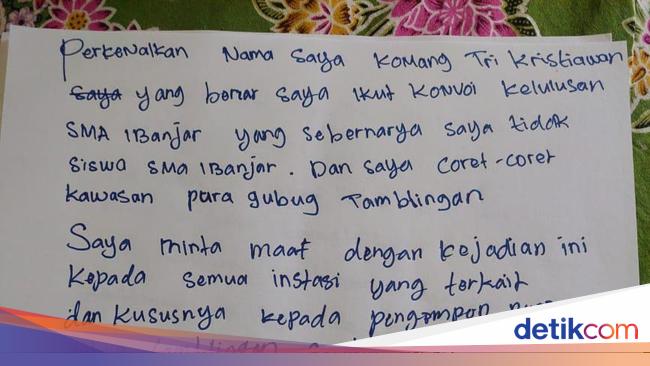 Perkenalkan Nama saya Komang Tri Kristiawan
saya yang benar saya ikut konvoi kelulusan
SMA 1 Banjar yang sebernarya saya tidak
siswa SMA 1 Banjar. Dan saya coret-coret
kawasan para gubug Tamblingan
Saya minta maaf dengan kejadian ini
kepada semua instasi yang terkait
dan kususnya kepada
detikcom